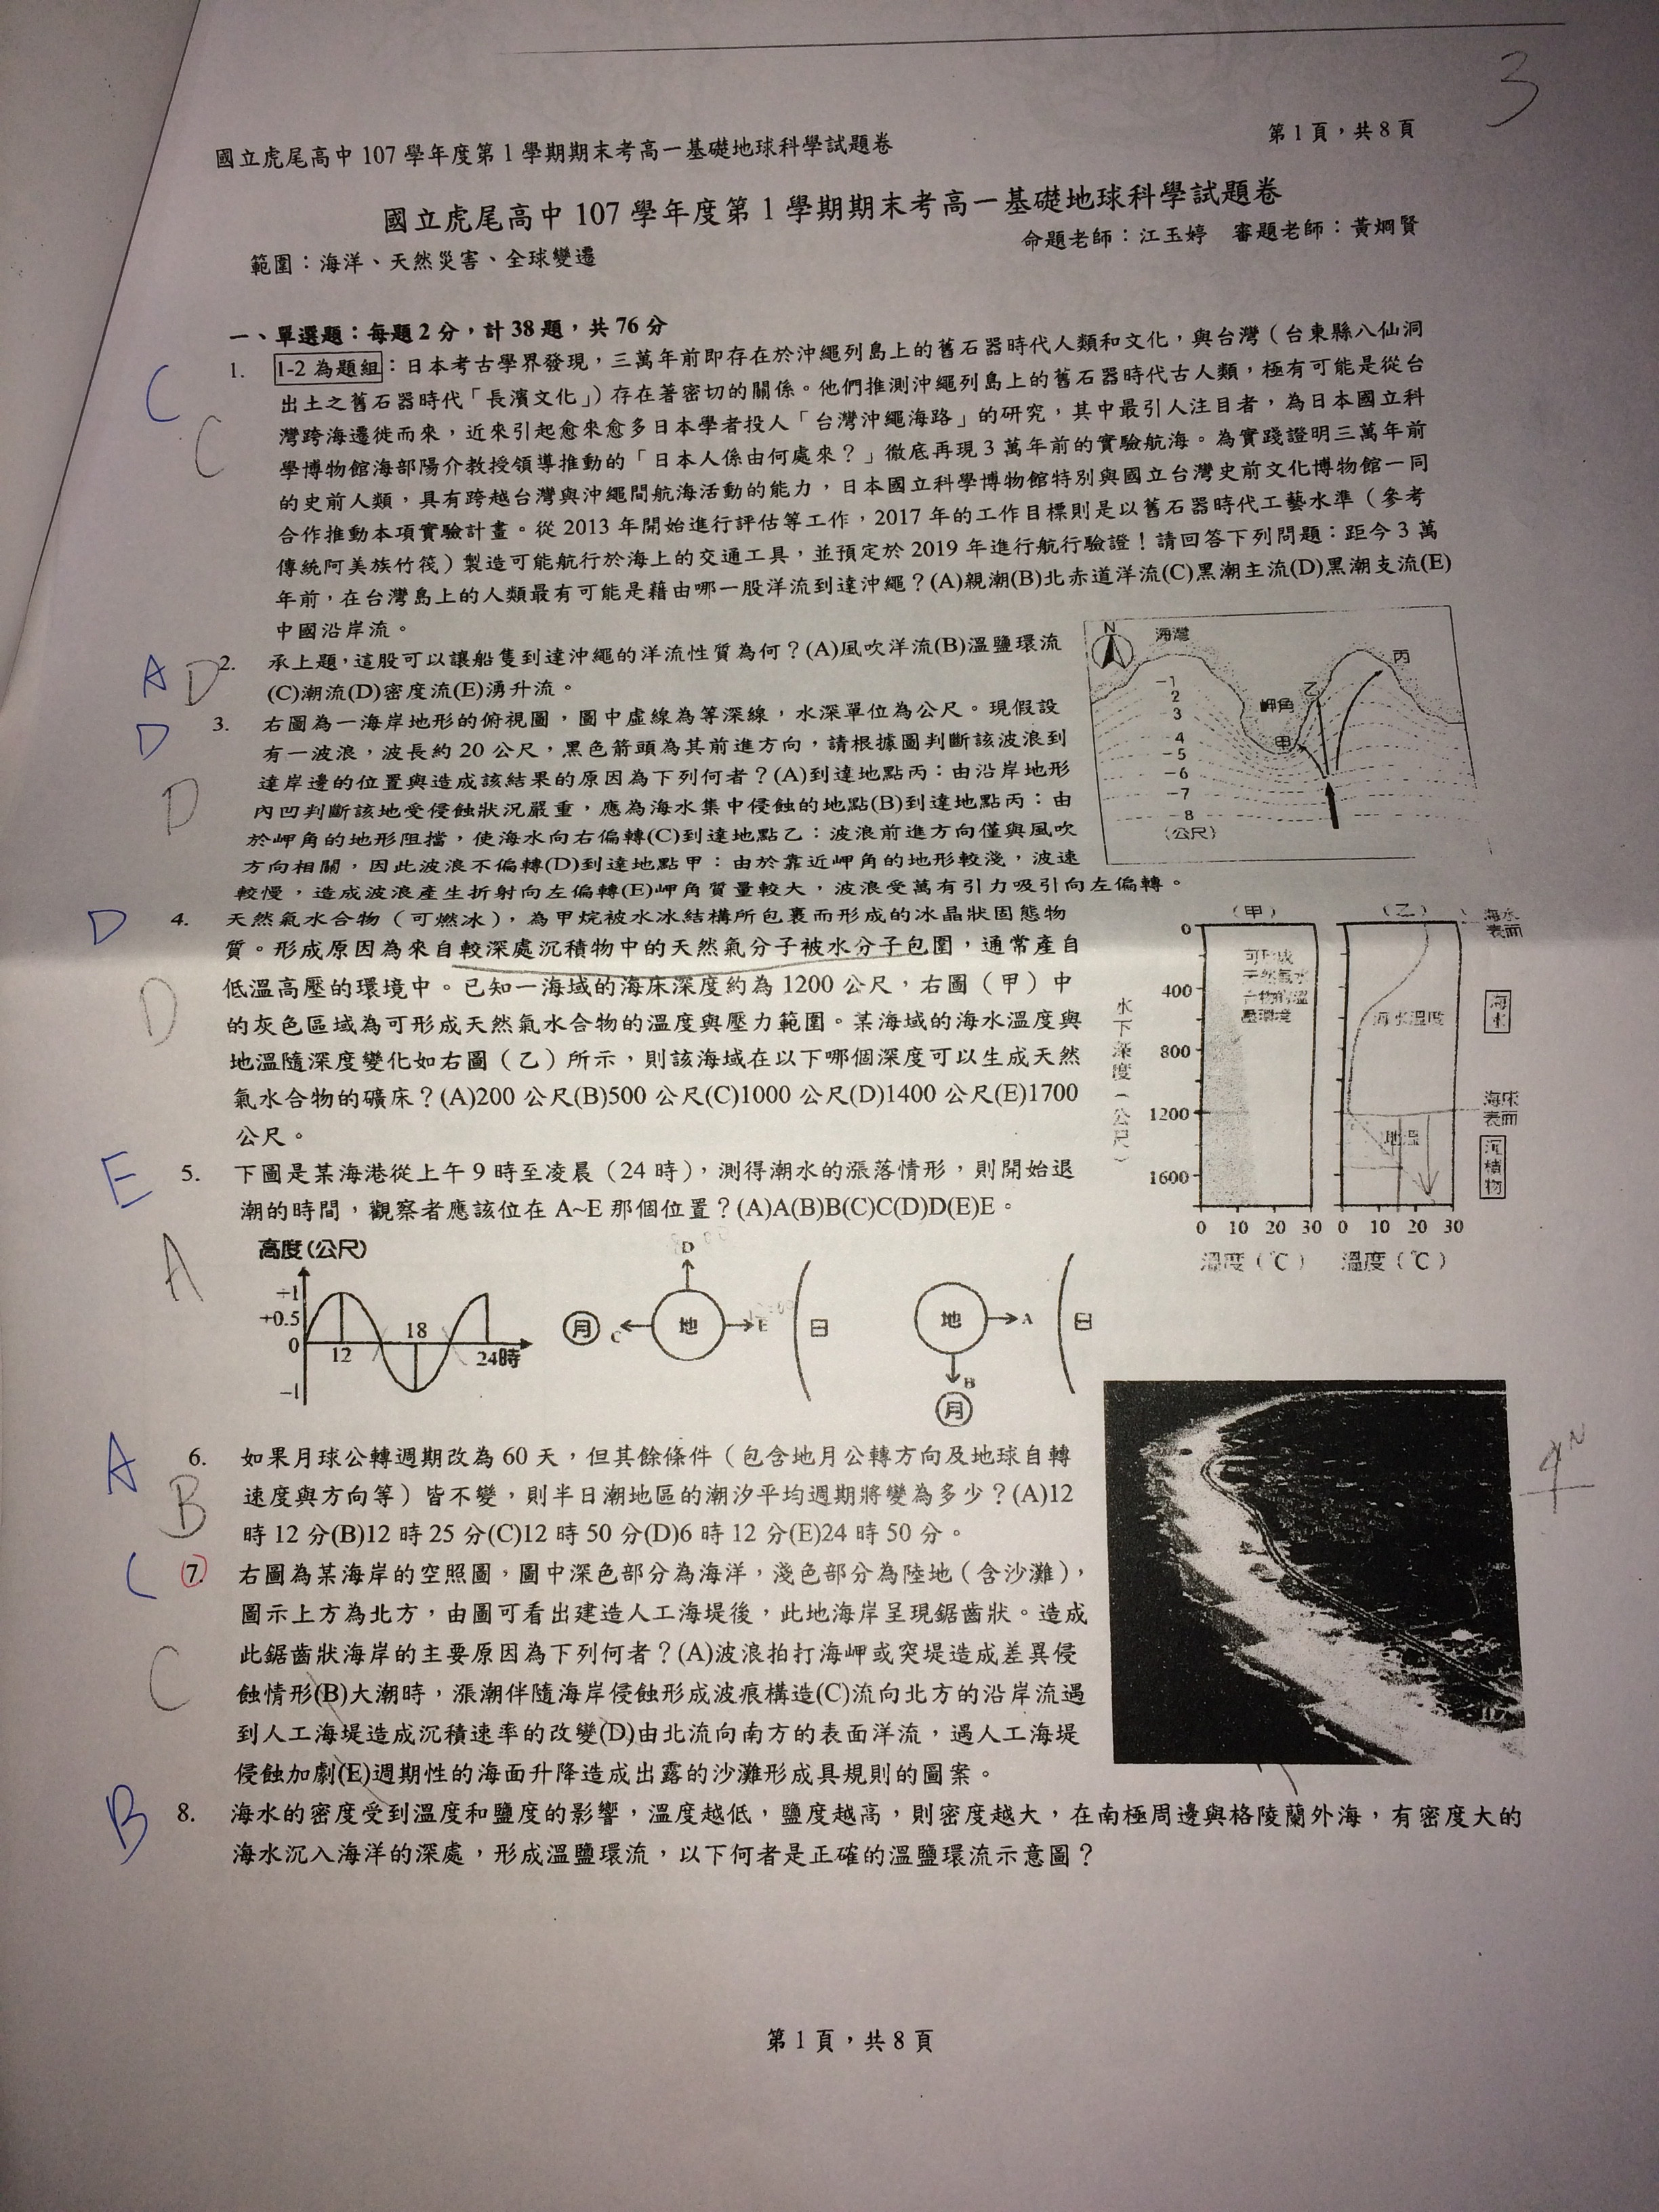 3
國立虎尾高中 107 學年度第 1 學期期末考高一基礎地球科學試題卷
第 1 頁，共 8 頁
國立虎尾高中 107 學年度第 1 學期期末考高一基礎地球科學試題卷
命題老師：江玉婷 審題老師：黃炯賢
範圍：海洋、天然災害、全球變遷
一、單選題：每題 2 分，計 38 題，共 76 分
C
C
1. 1-2 為題組：日本考古學界發現，三萬年前即存在於沖繩列島上的舊石器時代人類和文化，與台灣（台東縣八仙洞
出土之舊石器時代「長濱文化」）存在著密切的關係。他們推測沖繩列島上的舊石器時代古人類，極有可能是從台
灣跨海遷徙而來，近來引起愈來愈多日本學者投人「台灣沖繩海路」的研究，其中最引人注目者，為日本國立科
學博物館海部陽介教授領導推動的「日本人係由何處來？」徹底再現 3 萬年前的實驗航海。為實踐證明三萬年前
的史前人類，具有跨越台灣與沖繩間航海活動的能力，日本國立科學博物館特別與國立台灣史前文化博物館一同
合作推動本項實驗計畫。從 2013 年開始進行評估等工作，2017 年的工作目標則是以舊石器時代工藝水準（參考
傳統阿美族竹筏）製造可能航行於海上的交通工具，並預定於 2019 年進行航行驗證！請回答下列問題：距今 3 萬
年前，在台灣島上的人類最有可能是藉由哪一股洋流到達沖繩？(A)親潮(B)北赤道洋流(C)黑潮主流(D)黑潮支流(E)
中國沿岸流。
A D
2. 承上題，這股可以讓船隻到達沖繩的洋流性質為何？(A)風吹洋流(B)溫鹽環流
(C)潮流(D)密度流(E)湧升流。
D
D
3. 右圖為一海岸地形的俯視圖，圖中虛線為等深線，水深單位為公尺。現假設
有一波浪，波長約 20 公尺，黑色箭頭為其前進方向，請根據圖判斷該波浪到
達岸邊的位置與造成該結果的原因為下列何者？(A)到達地點丙：由沿岸地形
內凹判斷該地受侵蝕狀況嚴重，應為海水集中侵蝕的地點(B)到達地點丙：由
於岬角的地形阻擋，使海水向右偏轉(C)到達地點乙：波浪前進方向僅與風吹
方向相關，因此波浪不偏轉(D)到達地點甲：由於靠近岬角的地形較淺，波速
較慢，造成波浪產生折射向左偏轉(E)岬角質量較大，波浪受萬有引力吸引向左偏轉。
N
海灣
丙
乙
岬角
甲
-1
2
3
4
-5
-6
-7
-8
(公尺)
D
D
4. 天然氣水合物（可燃冰），為甲烷被水冰結構所包裹而形成的冰晶狀固態物
質。形成原因為來自較深處沉積物中的天然氣分子被水分子包圍，通常產自
低溫高壓的環境中。已知一海域的海床深度約為 1200 公尺，右圖（甲）中
的灰色區域為可形成天然氣水合物的溫度與壓力範圍。某海域的海水溫度與
地溫隨深度變化如右圖（乙）所示，則該海域在以下哪個深度可以生成天然
氣水合物的礦床？(A)200 公尺(B)500 公尺(C)1000 公尺(D)1400 公尺(E)1700
公尺。
(甲)
(乙)
海水
表面
可形成
天然氣水
合物的溫
壓環境
海水溫度
海水
海床
表面
地溫
沉積物
水下深度（公尺）
0
400
800
1200
1600
0 10 20 30 0 10 20 30
溫度 (℃) 溫度 (℃)
E
A
5. 下圖是某海港從上午 9 時至凌晨（24 時），測得潮水的漲落情形，則開始退
潮的時間，觀察者應該位在 A~E 那個位置？(A)A(B)B(C)C(D)D(E)E。
高度(公尺)
+1
+0.5
0
-1
12
18
24時
月
C
D
地
E
日
地
A
B
月
日
A
B
6. 如果月球公轉週期改為 60 天，但其餘條件（包含地月公轉方向及地球自轉
速度與方向等）皆不變，則半日潮地區的潮汐平均週期將變為多少？(A)12
時 12 分(B)12 時 25 分(C)12 時 50 分(D)6 時 12 分(E)24 時 50 分。
C
C
7. 右圖為某海岸的空照圖，圖中深色部分為海洋，淺色部分為陸地（含沙灘），
圖示上方為北方，由圖可看出建造人工海堤後，此地海岸呈現鋸齒狀。造成
此鋸齒狀海岸的主要原因為下列何者？(A)波浪拍打海岬或突堤造成差異侵
蝕情形(B)大潮時，漲潮伴隨海岸侵蝕形成波痕構造(C)流向北方的沿岸流遇
到人工海堤造成沉積速率的改變(D)由北流向南方的表面洋流，遇人工海堤
侵蝕加劇(E)週期性的海面升降造成出露的沙灘形成具規則的圖案。
N
B
8. 海水的密度受到溫度和鹽度的影響，溫度越低，鹽度越高，則密度越大，在南極周邊與格陵蘭外海，有密度大的
海水沉入海洋的深處，形成溫鹽環流，以下何者是正確的溫鹽環流示意圖？
第 1 頁，共 8 頁